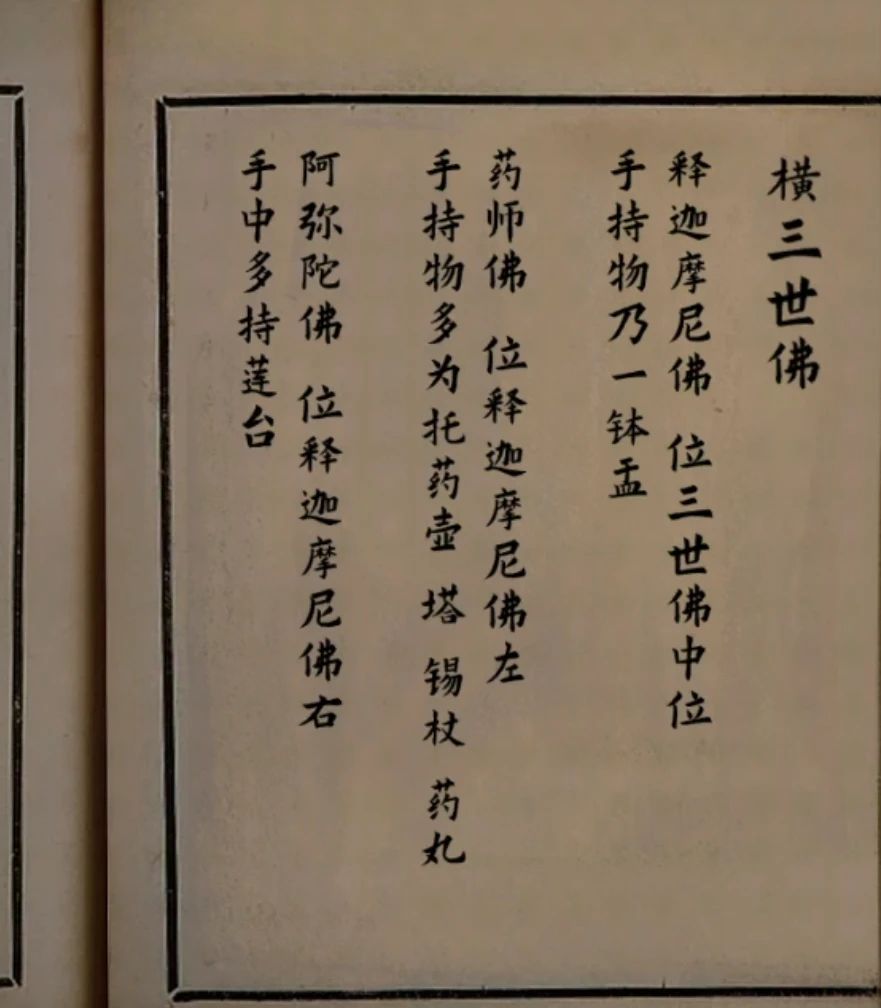 横三世佛
释迦摩尼佛 位三世佛中位
手持物乃一钵盂
药师佛 位释迦摩尼佛左
手持物多为托药壶 塔 锡杖 药丸
阿弥陀佛 位释迦摩尼佛右
手中多持莲台